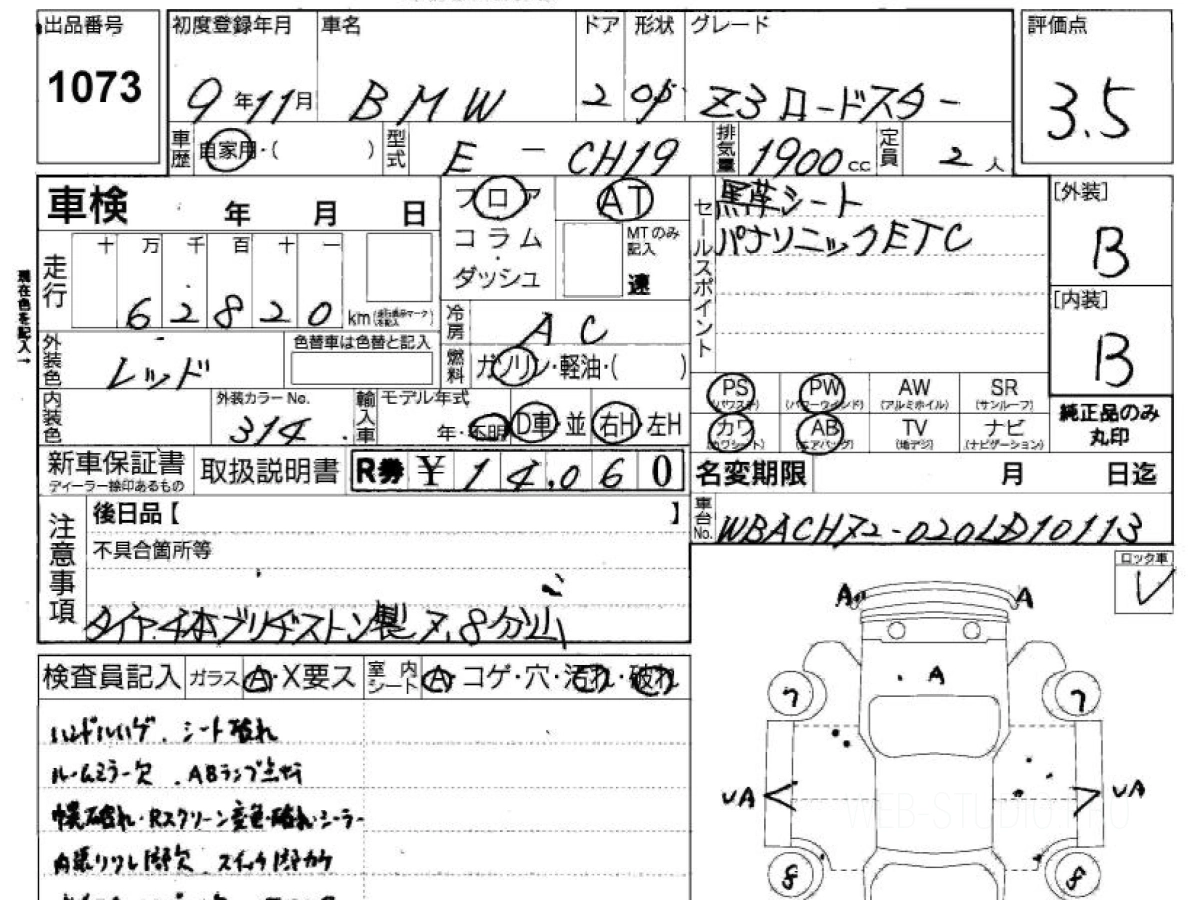 出品番号 初度登録年月 車名 ドア 形状 グレード 評価点
1073 9年11月 BMW 2 Z3ロードスター 3.5
車歴 自家用・( ) 型式 E-CH19 排気量 1900cc 定員 2人
車検 年 月 日
フロア AT
コラム MTのみ記入
ダッシュ 速
セールスポイント 黒革シート
パナソニックETC
[外装]
B
[内装]
B
現在色を記入→
走行 十万千百十一
62820km
冷房 AC
外装色 レッド 色替車は色替と記入
燃料 ガソリン・軽油・( )
内装色 外装カラーNo. 314 輸入車 モデル年式 年・不明 D車 並 右H 左H
PS (パワステ) PW (パワーウインド) AW (アルミホイル) SR (サンルーフ)
カワ (カワシート) AB (エアバッグ) TV (地デジ) ナビ (ナビゲーション)
純正品のみ
丸印
新車保証書 ディーラー捺印あるもの 取扱説明書 R券 ¥14,060
名変期限 月 日迄
注意事項 後日品【 】
不具合箇所等
タイヤ4本ブリヂストン製7.8分山
車台No.
ロック車
レ
検査員記入 ガラス A・X要ス 室内シート A・コゲ・穴・汚れ・破れ
ハンドルハゲ、シート破れ
ルームミラー欠、ABランプ点灯
幌破れ・Rスクリーン変色・破れ・シーラー
A A
A
7 7
UA UA
8 8
WEB-STUDIO.PRO